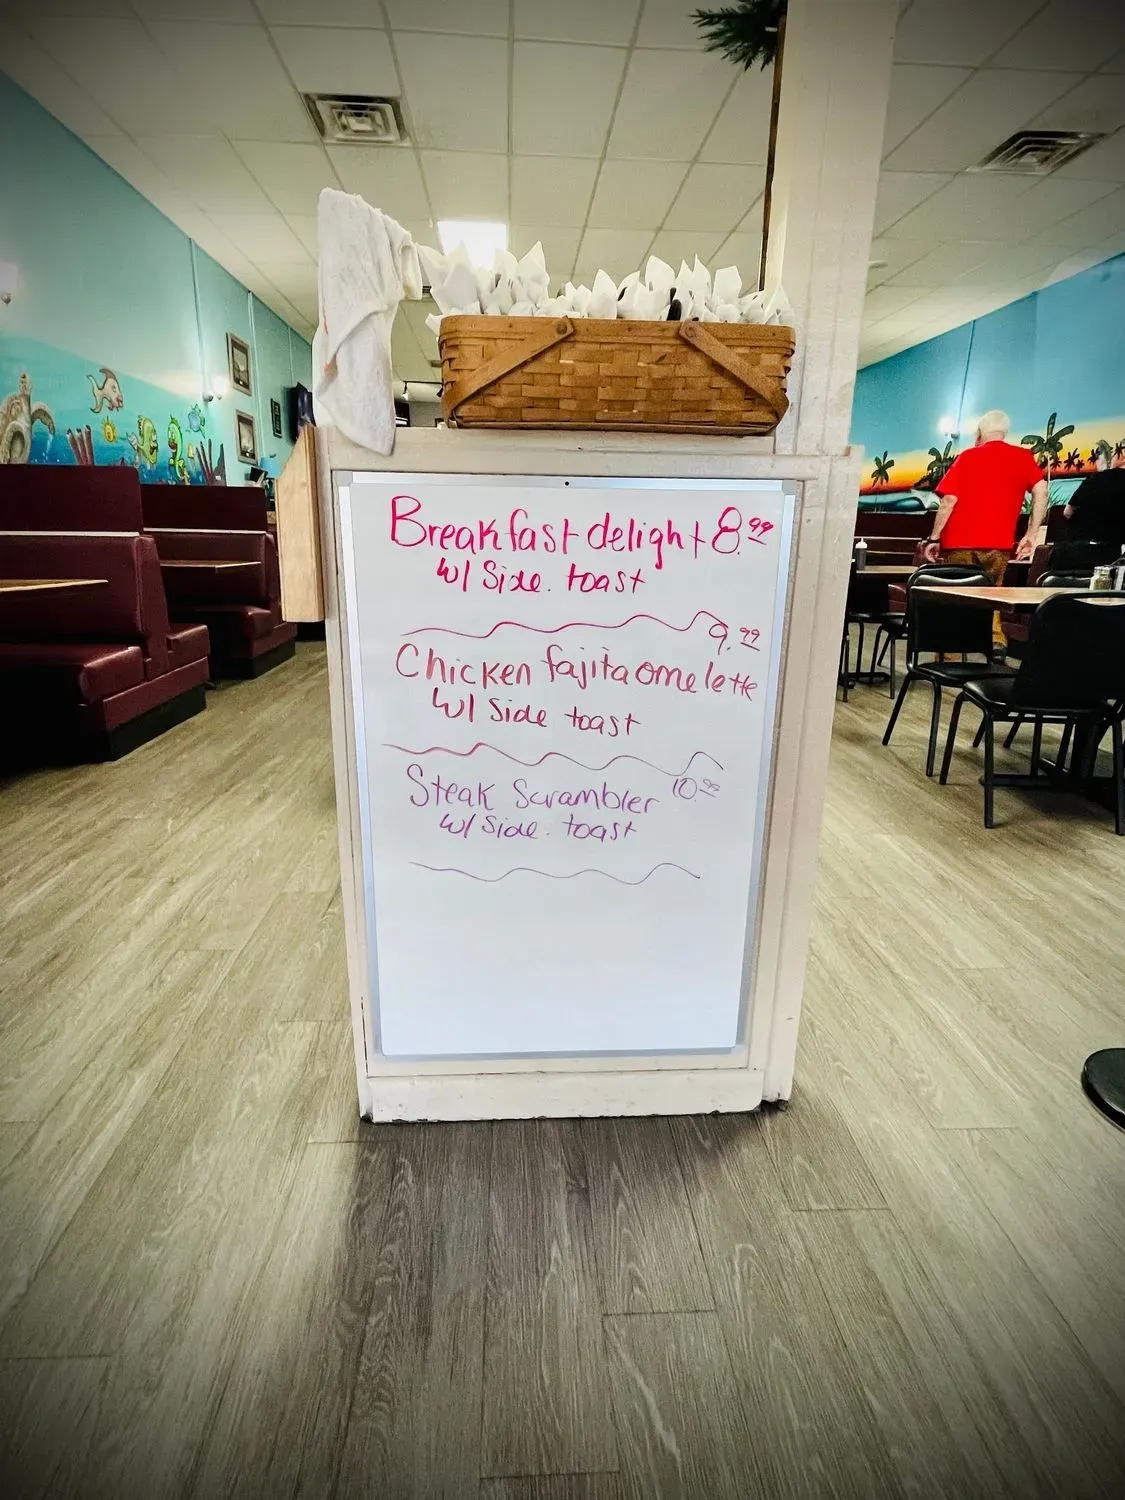 Breakfast delight 8.99
w/ Side. toast
9.99
Chicken fajita omelette
w/ Side toast
Steak Scrambler 10.99
w/ Side. toast